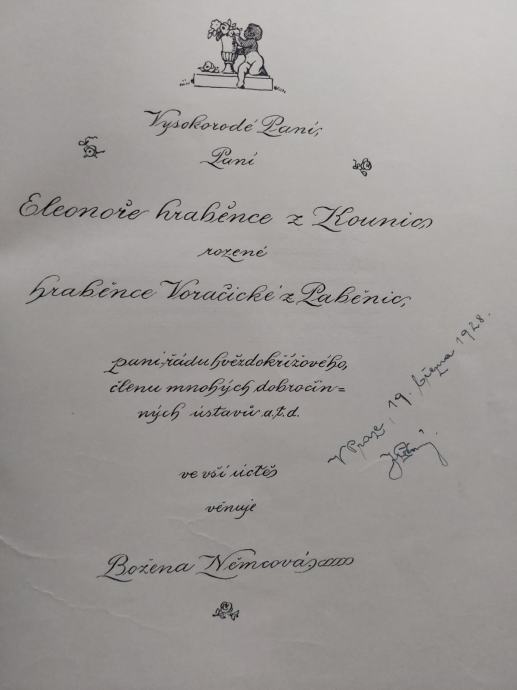 Vysokorodé Paní,
Paní
Eleonoře hraběnce z Kounic
rozené
hraběnce Voračické z Paběnic,
paní řádu hvězdokřížového,
členu mnohých dobročin=
ných ústavů a.t.d.
ve vší úctě
věnuje
Božena Němcová
V Praze, 19. března 1928.